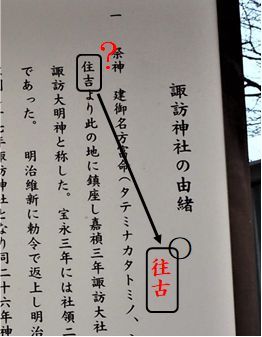 諏訪神社の由緒
一 祭神 建御名方富命(タテミナカタトミノ、
?
住吉より此の地に鎮座し嘉禎三年諏訪大社
往古
諏訪大明神と称した。宝永三年には社領二
であった。 明治維新に勅令で返上し明治
十七年諏訪神社となり同二十六年神